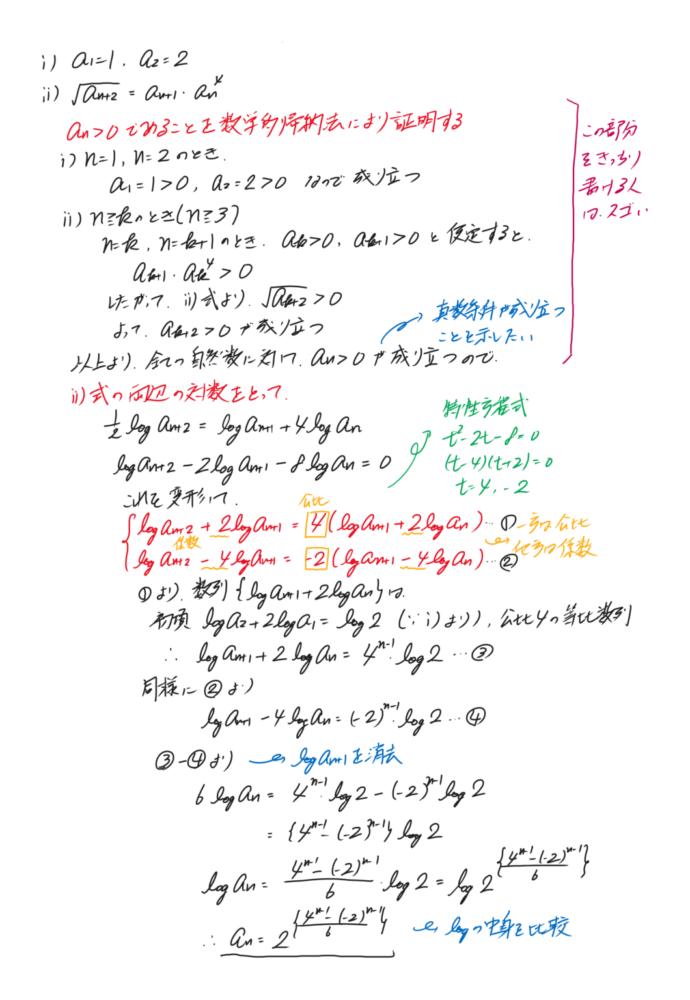 i) a₁=1, a₂=2
ii) √aₙ₊₂ = aₙ₊₁・aₙ⁴
aₙ>0 であることを数学的帰納法により証明する
i) n=1, n=2 のとき.
a₁=1>0, a₂=2>0 なので成り立つ
ii) n≧kのとき(n≧3)
n=k, n=k+1のとき. aₖ>0, aₖ₊₁>0 と仮定すると.
aₖ₊₁・aₖ⁴>0
したがって. ii)式より. √aₖ₊₂>0
よって. aₖ₊₂>0 が成り立つ
以上より. 全ての自然数に対して. aₙ>0 が成り立つので.
この部分
をきっちり
書ける人
は.スゴい
真数条件が成り立つ
ことを示したい
ii)式の両辺の対数をとって.
1/2 log aₙ₊₂ = log aₙ₊₁ + 4log aₙ
log aₙ₊₂ - 2log aₙ₊₁ - 8log aₙ = 0
特性方程式
t²-2t-8=0
(t-4)(t+2)=0
t=4, -2
これを変形して.
公比
{log aₙ₊₂ + 2log aₙ₊₁ = 4(log aₙ₊₁ + 2log aₙ)…①
係数
{log aₙ₊₂ - 4log aₙ₊₁ = -2(log aₙ₊₁ - 4log aₙ)…②
一方は公比
他方は係数
①より. 数列{log aₙ₊₁+2log aₙ}は.
初項 log a₂+2log a₁ = log 2 (∵ i)より), 公比4の等比数列
∴ log aₙ₊₁ + 2log aₙ = 4ⁿ⁻¹・log 2 …③
同様に②より
log aₙ₊₁ - 4log aₙ = (-2)ⁿ⁻¹・log 2 …④
③-④より log aₙ₊₁を消去
6 log aₙ = 4ⁿ⁻¹・log 2 - (-2)ⁿ⁻¹log 2
= {4ⁿ⁻¹ - (-2)ⁿ⁻¹} log 2
log aₙ = (4ⁿ⁻¹ - (-2)ⁿ⁻¹)/6・log 2 = log 2^{(4ⁿ⁻¹-(-2)ⁿ⁻¹)/6}
∴ aₙ = 2^{(4ⁿ⁻¹-(-2)ⁿ⁻¹)/6} logの中身を比較